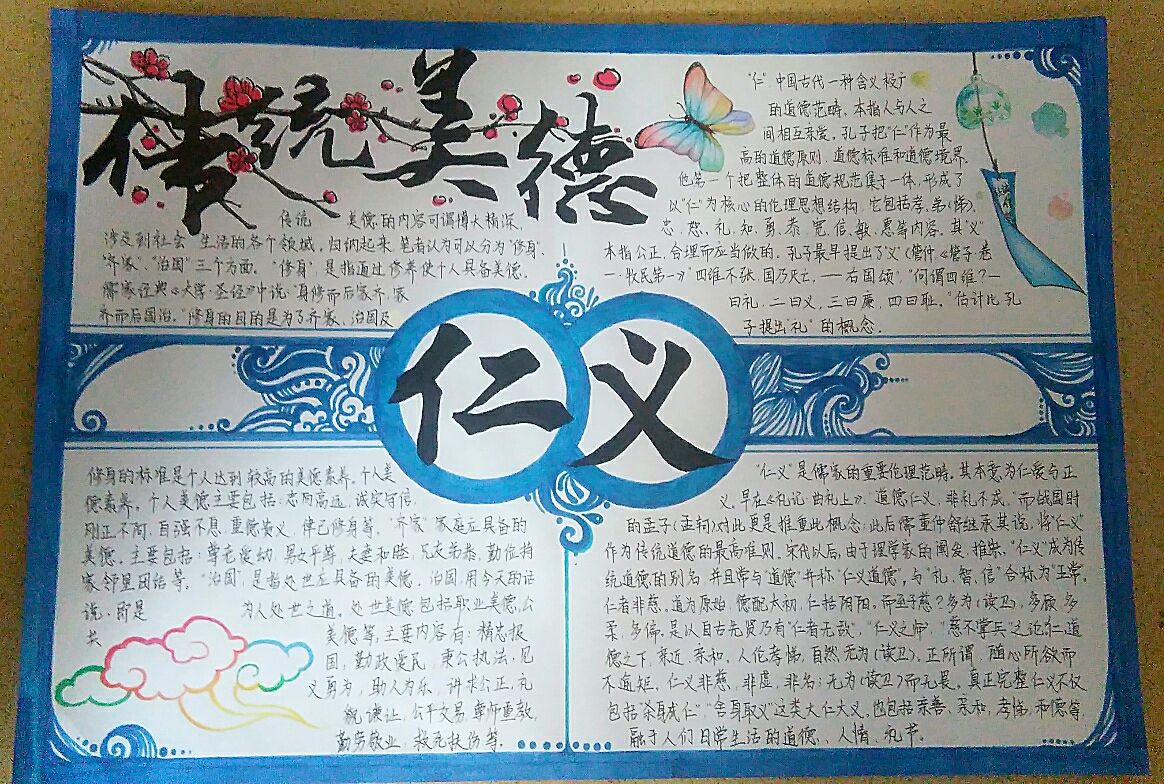 传统美德
传统 美德的内容可谓博大精深,
涉及到社会 生活的各个领域,归纳起来,笔者认为可以分为“修身”、
“齐家”、“治国”三个方面。“修身”,是指通过修养使个人具备美德。
儒家经典《大学·圣经》中说:“身修而后家齐,家
齐而后国治。”修身的目的是为了齐家、治国及
“仁”中国古代一种含义极广
的道德范畴。本指人与人之
间相互亲爱。孔子把“仁”作为最
高的道德原则、道德标准和道德境界。
他第一个把整体的道德规范集于一体,形成了
以“仁”为核心的伦理思想结构,它包括孝、弟(悌)、
忠、恕、礼、知、勇、恭、宽、信、敏、惠等内容。其“义”
本指公正、合理而应当做的。孔子最早提出了“义”《管仲《管子·卷
一·牧民第一》“四维不张,国乃灭亡,——右国颂”,“何谓四维?一
曰礼,二曰义,三曰廉,四曰耻。”估计比孔
子提出“礼”的概念。
仁义
修身的标准是个人达到较高的美德素养。个人美
德素养。个人美德主要包括:志向高远,诚实守信,
刚正不阿,自强不息,重德贵义,律己修身等。“齐家”家庭应具备的
美德。主要包括:尊老爱幼,男女平等,夫妻和睦,兄友弟恭,勤俭持
家,邻里团结等。“治国”,是指处世应具备的美德。治国,用今天的话
说,即是 为人处世之道。处世美德包括职业美德,公
共 美德等,主要内容有:精忠报
国,勤政爱民,秉公执法,见
义勇为,助人为乐,讲求公正,礼
貌谦让,公平交易,尊师重教,
勤劳敬业,救死扶伤等。
“仁义”是儒家的重要伦理范畴。其本意为仁爱与正
义。早在《礼记·曲礼上》:“道德仁义,非礼不成,”而战国时
的孟子(孟轲)对此更是推重此概念;此后儒董仲舒继承其说,将“仁义”
作为传统道德的最高准则。宋代以后,由于理学家的阐发、推崇,“仁义”成为传
统道德的别名,并且常与“道德”并称“仁义道德”,与“礼、智、信”合称为“五常。
仁者非慈。道为原始,德配太初,仁括阴阳。而圣子慈?多为(读卫),多顾,多
柔,多偏。是以自古先贤乃有“仁者无敌”,“仁义之师”,“慈不掌兵”之论仁,道
德之下,亲近,亲和,人伦孝悌,自然,无为(读卫)。正所谓,随心所欲而
不逾矩。仁义非慈,非虚,非名;无为(读卫)而无畏。真正完整仁义不仅
包括“杀身成仁”,“舍身取义”这类大仁大义,也包括亲善、亲和,孝悌,和德等,
融于人们日常生活的道德、人情、礼节。